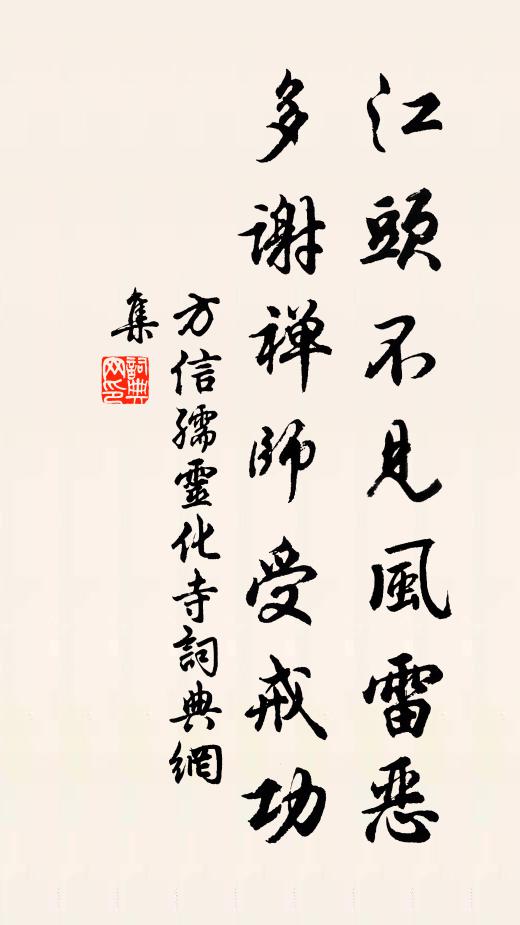 江頭不見風雷惡
多謝禅師受戒功
方信孺靈化寺詞典網
集
詞典
网印